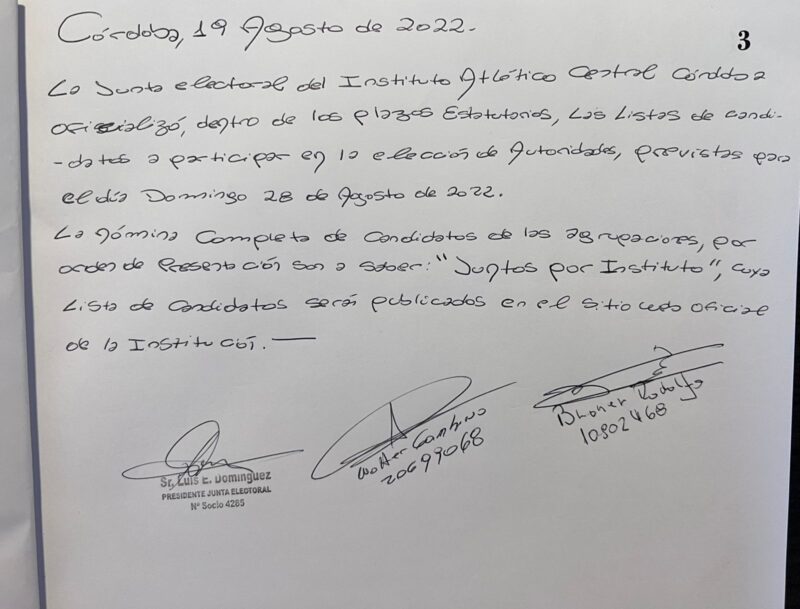 Córdoba, 19 Agosto de 2022.
3
La Junta electoral del Instituto Atlético Central Córdoba
oficializó, dentro de los plazos Estatutarios, Las Listas de candi-
-datos a participar en la elección de Autoridades, previstas para
el día Domingo 28 de Agosto de 2022.
La nómina Completa de Candidatos de las agrupaciones, por
orden de Presentación son a saber: "Juntos por Instituto", cuya
Lista de Candidatos serán publicados en el sitio web oficial
de la Institución.
Sr. Luis E. Dominguez
PRESIDENTE JUNTA ELECTORAL
Nº Socio 4265
Walter Gambino
20699068
Rodolfo
10902468